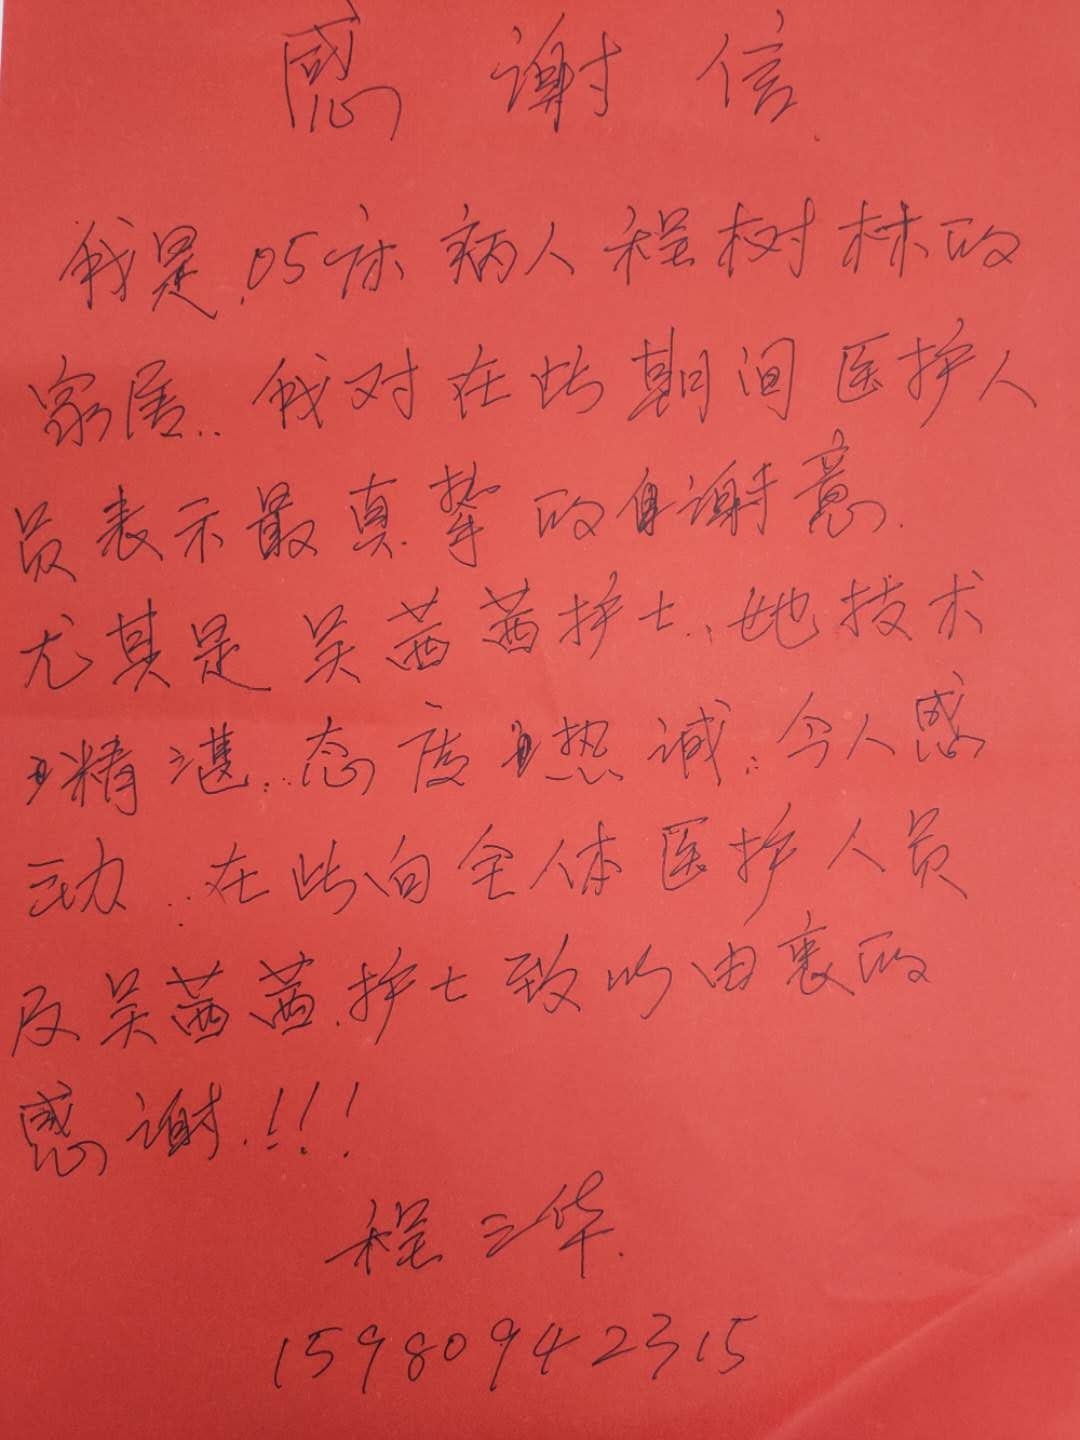 感谢信
我是.05床病人程树林的
家居..我对在此期间医护人
员表示最真挚的谢意.
尤其是吴茜茜护士.,她技术
精湛..态度热诚..令人感
动..在此向全体医护人员
及吴茜茜.护士致以由衷的
感谢.!!!
程三华.
15980942315